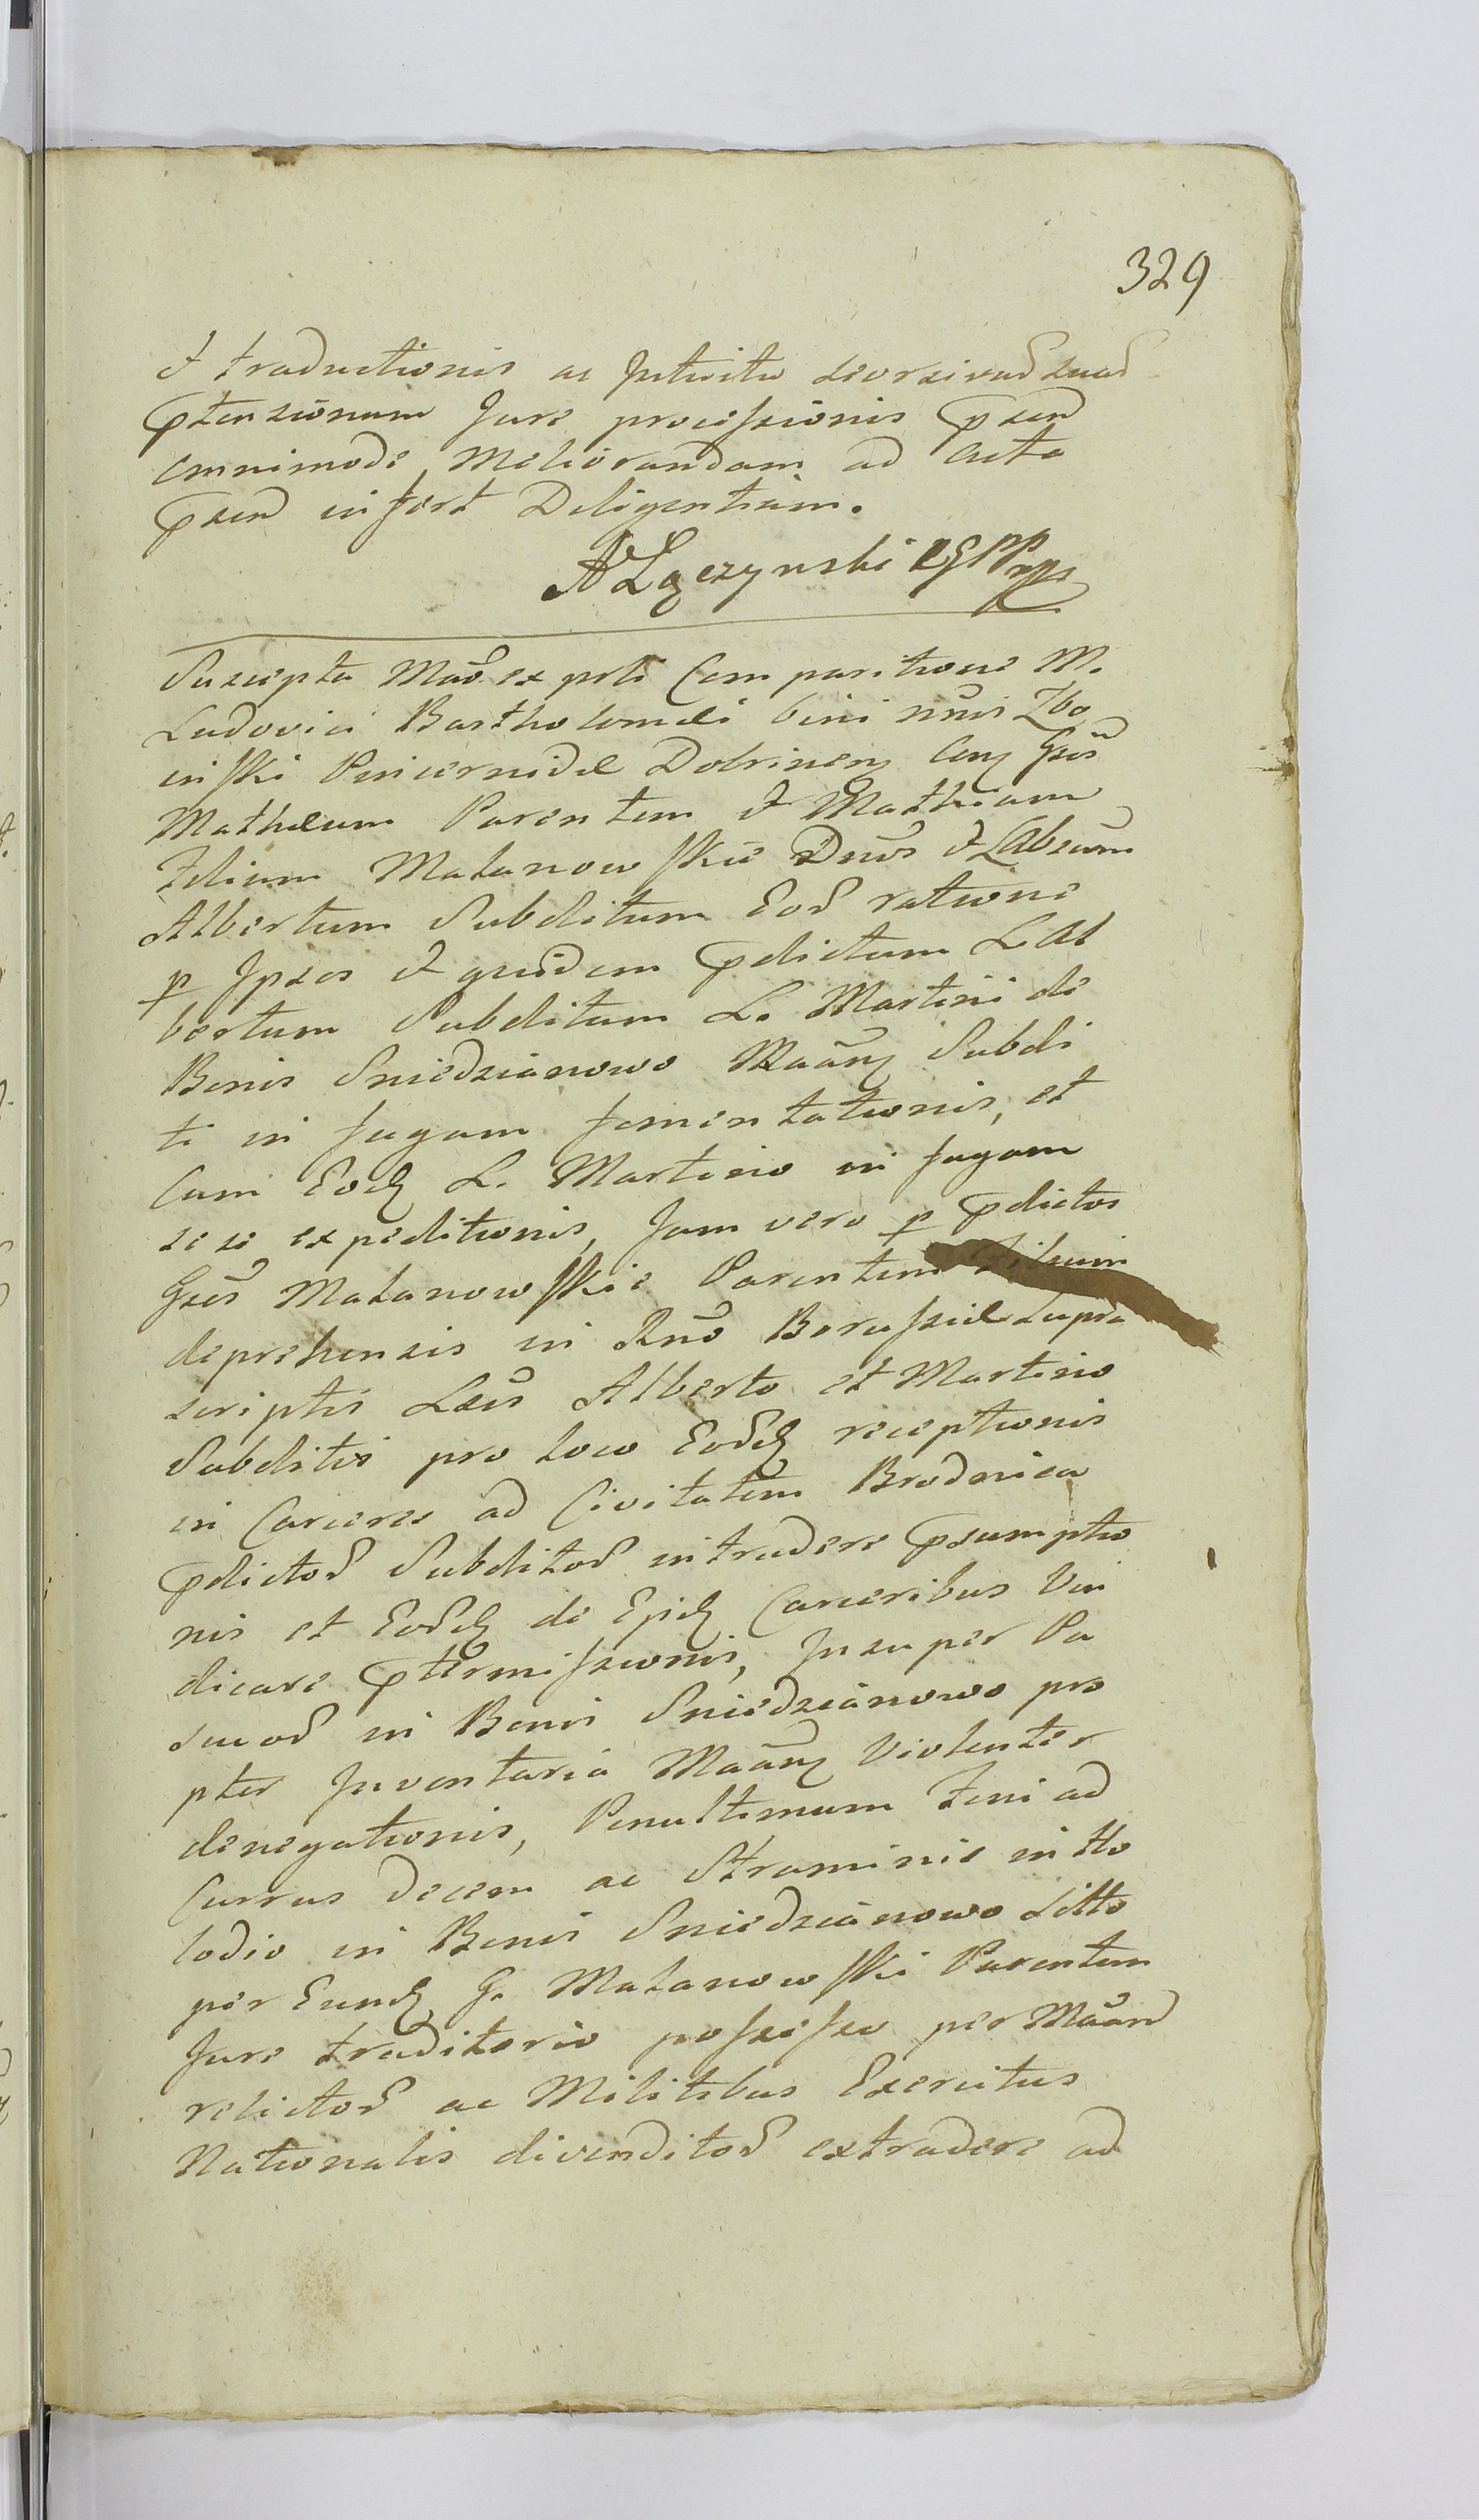 329
et traductionis ac Intuitu seorsivad suad
Ptensionum Jure processionis Psen
omnimode Meliorandam ad Acta
Psen infert Diligentiam.
A Łączynski
Suscepta Mãõ ex psti Comparitione M.
Ludovici Bartholomæi bini nñis Zbo
inski Pincernidæ Dobrinen Con Gsos
Mathæum Parentem et Mathiam
Filium Małanowskie Dnõs et Labsum
Albertum Subditum Eod ratione
p Ipsos et quidem Pdictum L. Al
bertum Subditum L. Martini de
Bonis Sniedzianowo Maãn Subdi
ti in fugam fomentationis, et
Cum Eod L. Martino in fugam
sese expeditionis, Jam vero p Pdictos
Gsõs Małanowskie Parentem Filium
deprehensis in Rnõ Borussiæ Supra
scriptis Lsis Alberto et Martino
Subditis pro loco Eod receptionis
in Carceres ad Civitatem Brodnica
Pdictos Subditos intradere Psumptio
nis et Eosd de Eisd Carceribus Vin
dicare Ptermissionis, Insuper Pa
scuad in Bonis Sniedzianowo pro
pter Inventaria Maãn Violenter
denegationis, Penultimum Feni ad
Currus decem ac Straminis in Ho
lodio in Bonis Sniedzianowo sitto
per Eund G. Małanowski Parentem
Jure traditorio possesso per Maãn
relictod ac Militibus Exercitus
Nationalis divenditod extradere ad